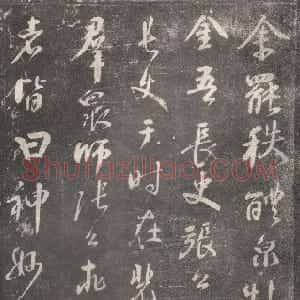 余罷秩醴泉
金吾長史張公
長史于時在裴
羣眾師張公
者皆曰神妙
Shufaziliao.com